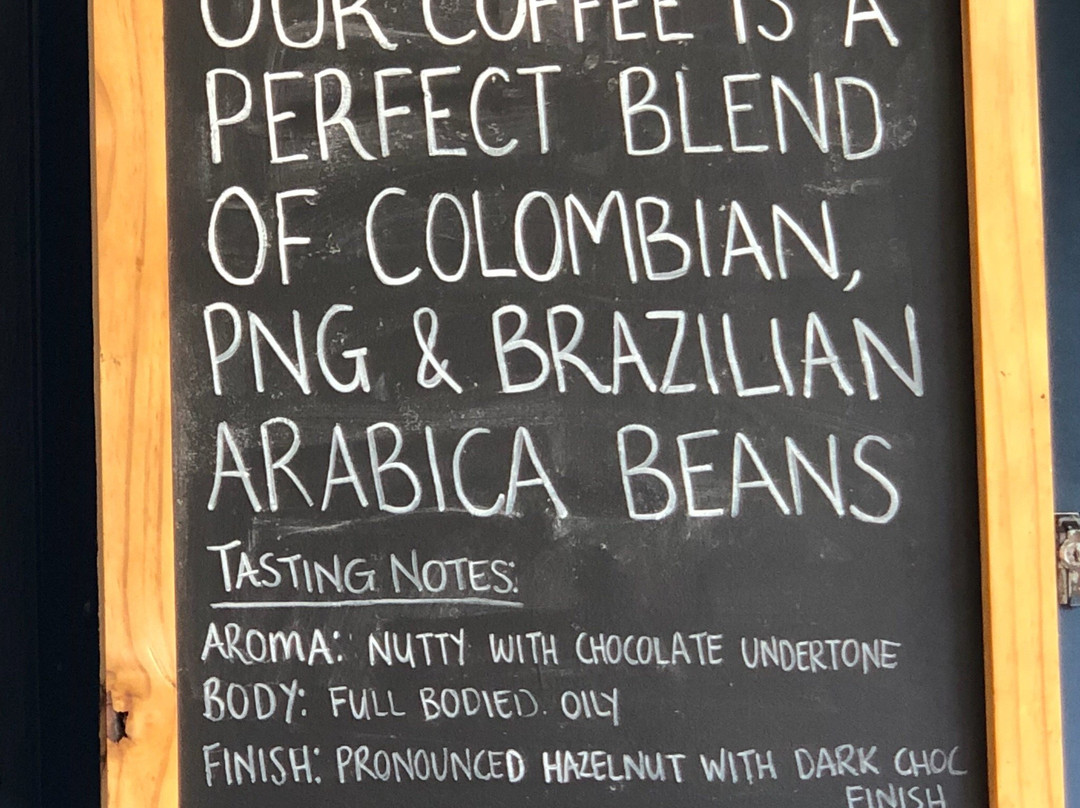 OUR COFFEE IS A
PERFECT BLEND
OF COLOMBIAN,
PNG & BRAZILIAN
ARABICA BEANS
TASTING NOTES:
AROMA: NUTTY WITH CHOCOLATE UNDERTONE
BODY: FULL BODIED. OILY
FINISH: PRONOUNCED HAZELNUT WITH DARK CHOC
FINISH